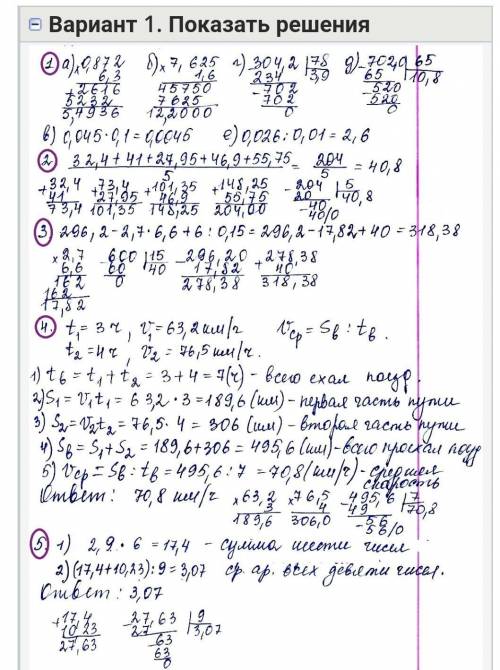 Вариант 1. Показать решения
1 а) × 0,872 б) × 7,625 г) 304,2 | 78 д) 702,0 | 65
6,3 1,6 234 3,9 65 10,8
+ 2616 45750 - 702 - 520
5232 7625 702 520
5,4936 12,2000 0 0
в) 0,045·0,1=0,0045 е) 0,026:0,01=2,6
2 32,4+41+27,95+46,9+55,75 / 5 = 204 / 5 = 40,8
+ 32,4 + 73,4 + 101,35 + 148,25 - 204 | 5
41 27,95 46,9 55,75 20 40,8
73,4 101,35 148,25 204,00 - 40
40/0
3 296,2-2,7·6,6+6:0,15=296,2-17,82+40=318,38
× 2,7 - 600 | 15 - 296,20 + 278,38
6,6 60 40 17,82 40
162 0 278,38 318,38
162
17,82
4. t1=3ч, v1=63,2км/ч vср=Sв:tв.
t2=4ч, v2=76,5км/ч.
1) tв=t1+t2=3+4=7(ч)-всего ехал поезд.
2) S1=v1t1=63,2·3=189,6(км)-первая часть пути
3) S2=v2t2=76,5·4=306(км)-вторая часть пути
4) Sв=S1+S2=189,6+306=495,6(км)-всего проехал поезд
5) vср=Sв:tв=495,6:7=70,8(км/ч)-средняя
скорость
Ответ: 70,8 км/ч × 63,2 × 76,5 - 495,6 | 7
3 4 49 70,8
189,6 306,0 - 56
56/0
5. 1) 2,9·6=17,4 - сумма шести чисел
2) (17,4+10,23):9=3,07 ср. ар. всех девяти чисел.
Ответ: 3,07
+ 17,4 - 27,63 | 9
10,23 27 3,07
27,63 - 63
63
0